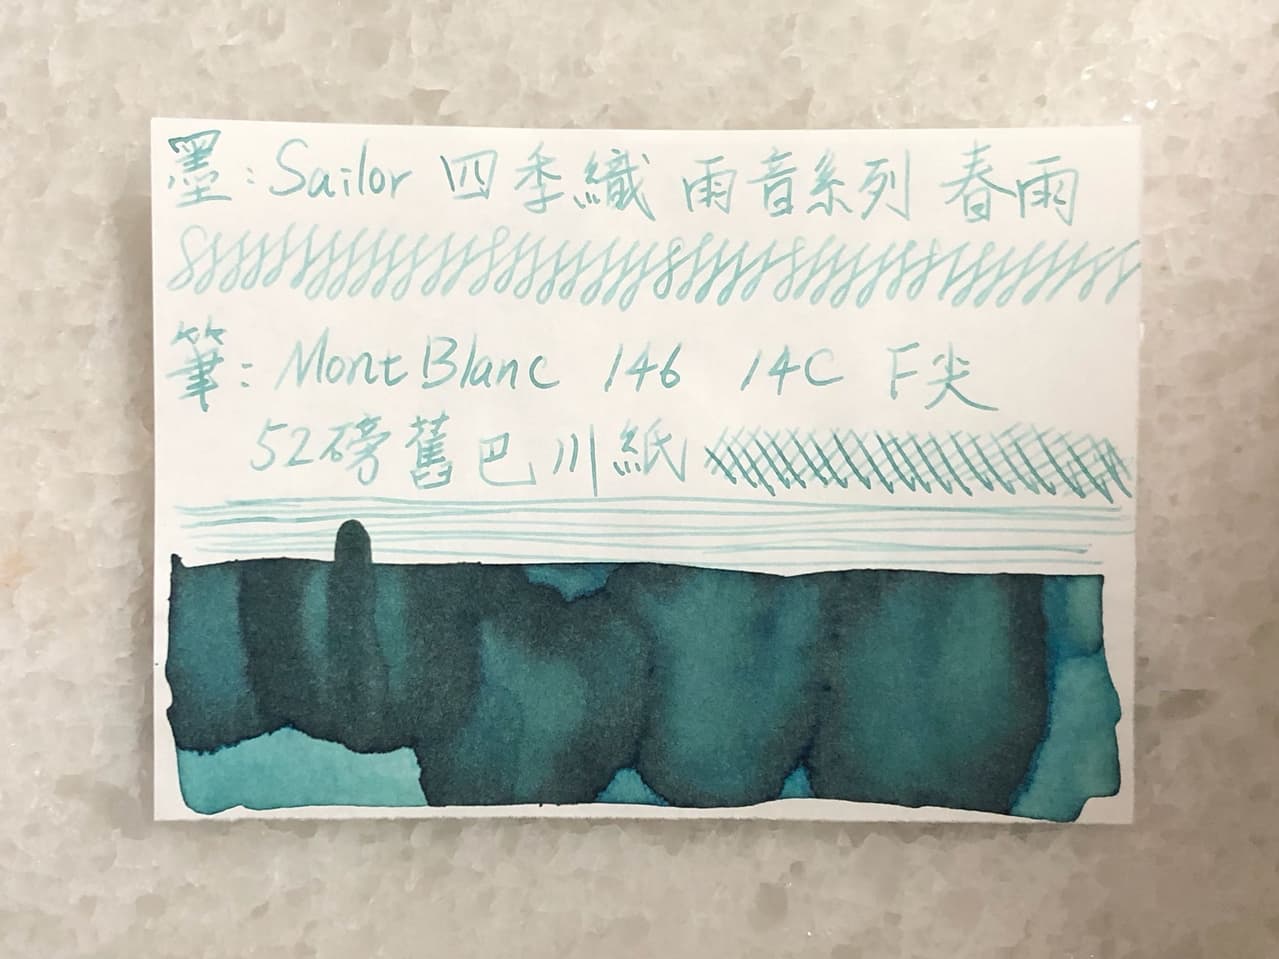 墨：Sailor 四季織 雨音系列 春雨
筆：MontBlanc 146 14C F尖
52磅舊巴川紙